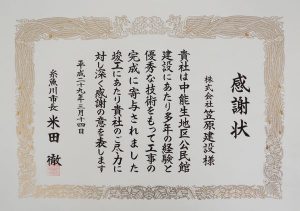 感謝状
株式会社笠原建設様
貴社は中能生地区公民館
建設にあたり多年の経験と
優秀な技術をもって工事の
完成に寄与されました
竣工にあたり貴社のご尽力に
対し深く感謝の意を表します
平成二十九年三月十四日
糸魚川市長 米田徹